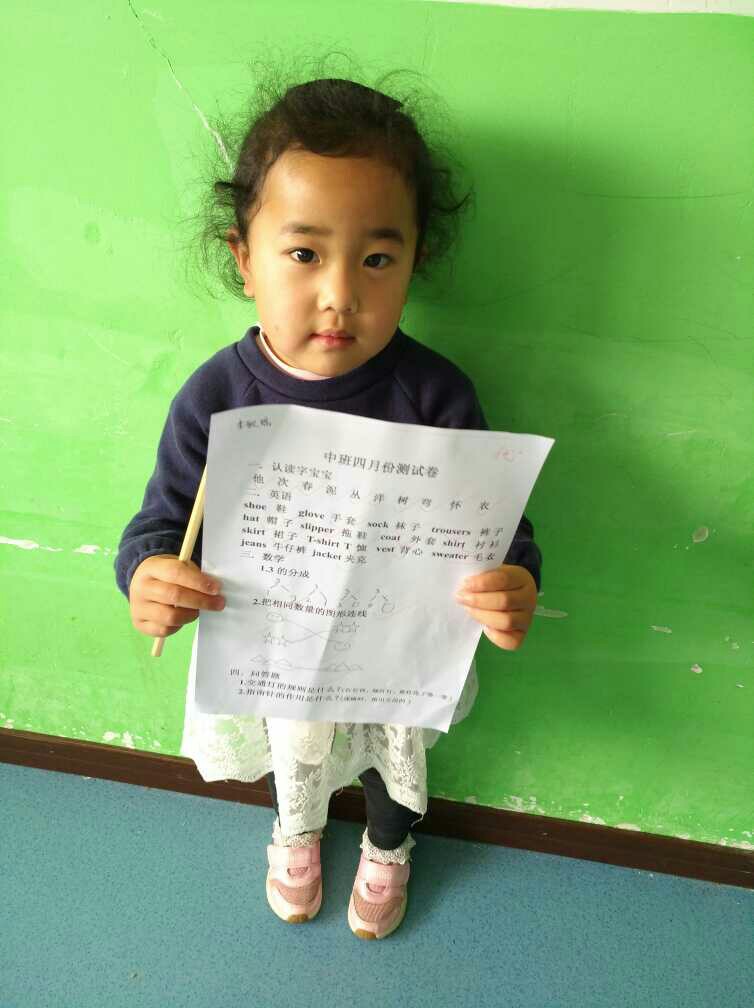 中班四月份测试卷
一. 认读字宝宝
他 次 春 泥 丛 洋 树 弯 怀 衣
二. 英语
shoe 鞋 glove 手套 sock 袜子 trousers 裤子
hat 帽子 slipper 拖鞋 coat 外套 shirt 衬衫
skirt 裙子 T-shirt T 恤 vest 背心 sweater 毛衣
jeans 牛仔裤 jacket 夹克
三. 数学
1.3 的分成
2.把相同数量的图形连线
四. 问答题
1.交通灯的规则是什么?(红灯停, 绿灯行, 黄灯亮了等一等)
2.指南针的作用是什么?